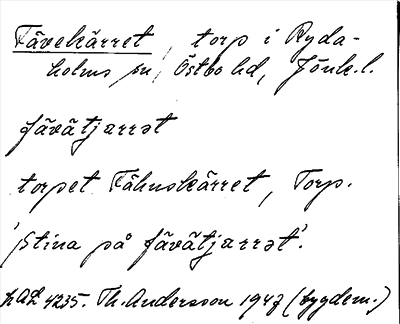 Fävekärret, torp i Ryda-
holms sn, Östbo hd, Jönk.l.
fävätjarrət
torpet Fähuskärret, Torp.
'Stina på fävätjarrət'.
LAL 4235. Th. Andersson 1943 (bygdem.)